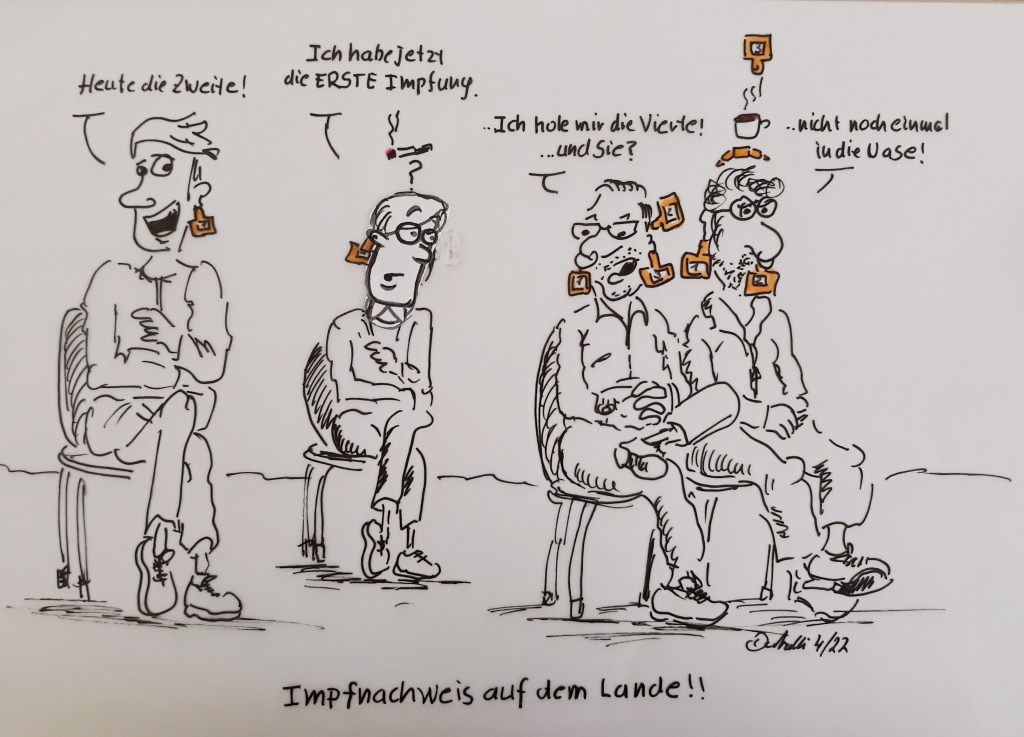 Heute die Zweite!
Ich habe jetzt
die ERSTE Impfung.
?
..Ich hole mir die Vierte!
...und Sie?
..nicht noch einmal
in die Nase!
3
Impfnachweis auf dem Lande!!
4/22